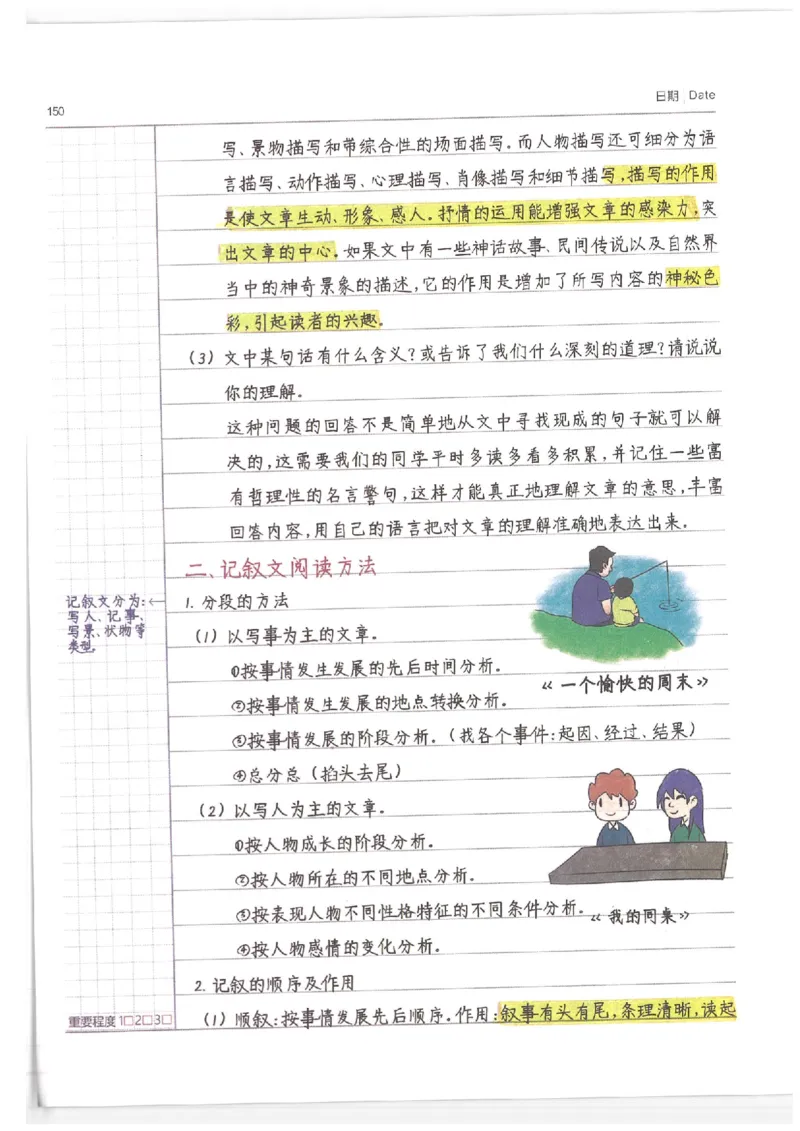 150
日期 Date
写、景物描写和带综合性的场面描写。而人物描写还可细分为语
言描写、动作描写、心理描写、肖像描写和细节描写,描写的作用
是使文章生动、形象、感人。抒情的运用能增强文章的感染力,突
出文章的中心。如果文中有一些神话故事、民间传说以及自然界
当中的神奇景象的描述,它的作用是增加了所写内容的神秘色
彩,引起读者的兴趣。
(3) 文中某句话有什么含义?或告诉了我们什么深刻的道理?请说说
你的理解。
这种问题的回答不是简单地从文中寻找现成的句子就可以解
决的,这需要我们的同学平时多读多看多积累,并记住一些富
有哲理性的名言警句,这样才能真正地理解文章的意思,丰富
回答内容,用自己的语言把对文章的理解准确地表达出来。
二、记叙文阅读方法
记叙文分为:←
写人、记事、
写景、状物等
类型。
1. 分段的方法
(1) 以写事为主的文章。
①按事情发生发展的先后时间分析。
《一个愉快的周末》
②按事情发生发展的地点转换分析。
③按事情发展的阶段分析。(找各个事件:起因、经过、结果)
④总分总(掐头去尾)
(2) 以写人为主的文章。
①按人物成长的阶段分析。
②按人物所在的不同地点分析。
③按表现人物不同性格特征的不同条件分析。
《我的同桌》
④按人物感情的变化分析。
2. 记叙的顺序及作用
(1) 顺叙:按事情发展先后顺序。作用:叙事有头有尾,条理清晰,读起
重要程度 1□2□3□